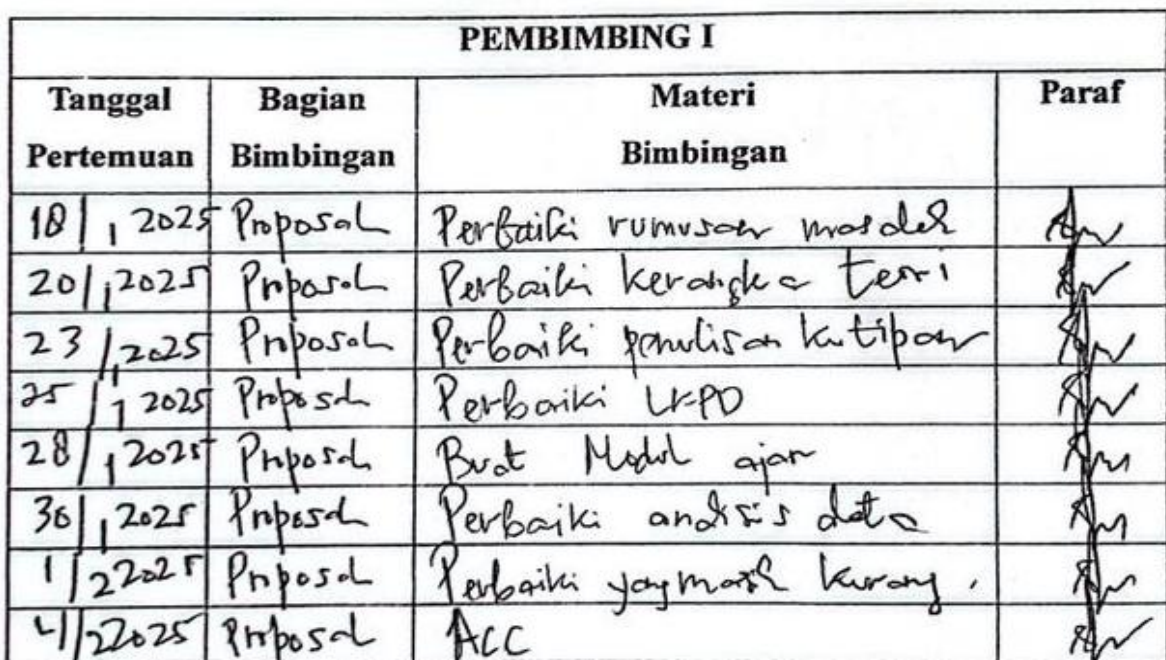 PEMBIMBING I
Tanggal Pertemuan Bagian Bimbingan Materi Bimbingan Paraf
18/1 2025 Proposal Perbaiki rumusan masalah
20/1 2025 Proposal Perbaiki kerangka teori
23/1 2025 Proposal Perbaiki penulisan kutipan
25/1 2025 Proposal Perbaiki LKPD
28/1 2025 Proposal Buat Modul ajar
30/1 2025 Proposal Perbaiki analisis data
1/2 2025 Proposal Perbaiki yang masih kurang.
4/2 2025 Proposal ACC